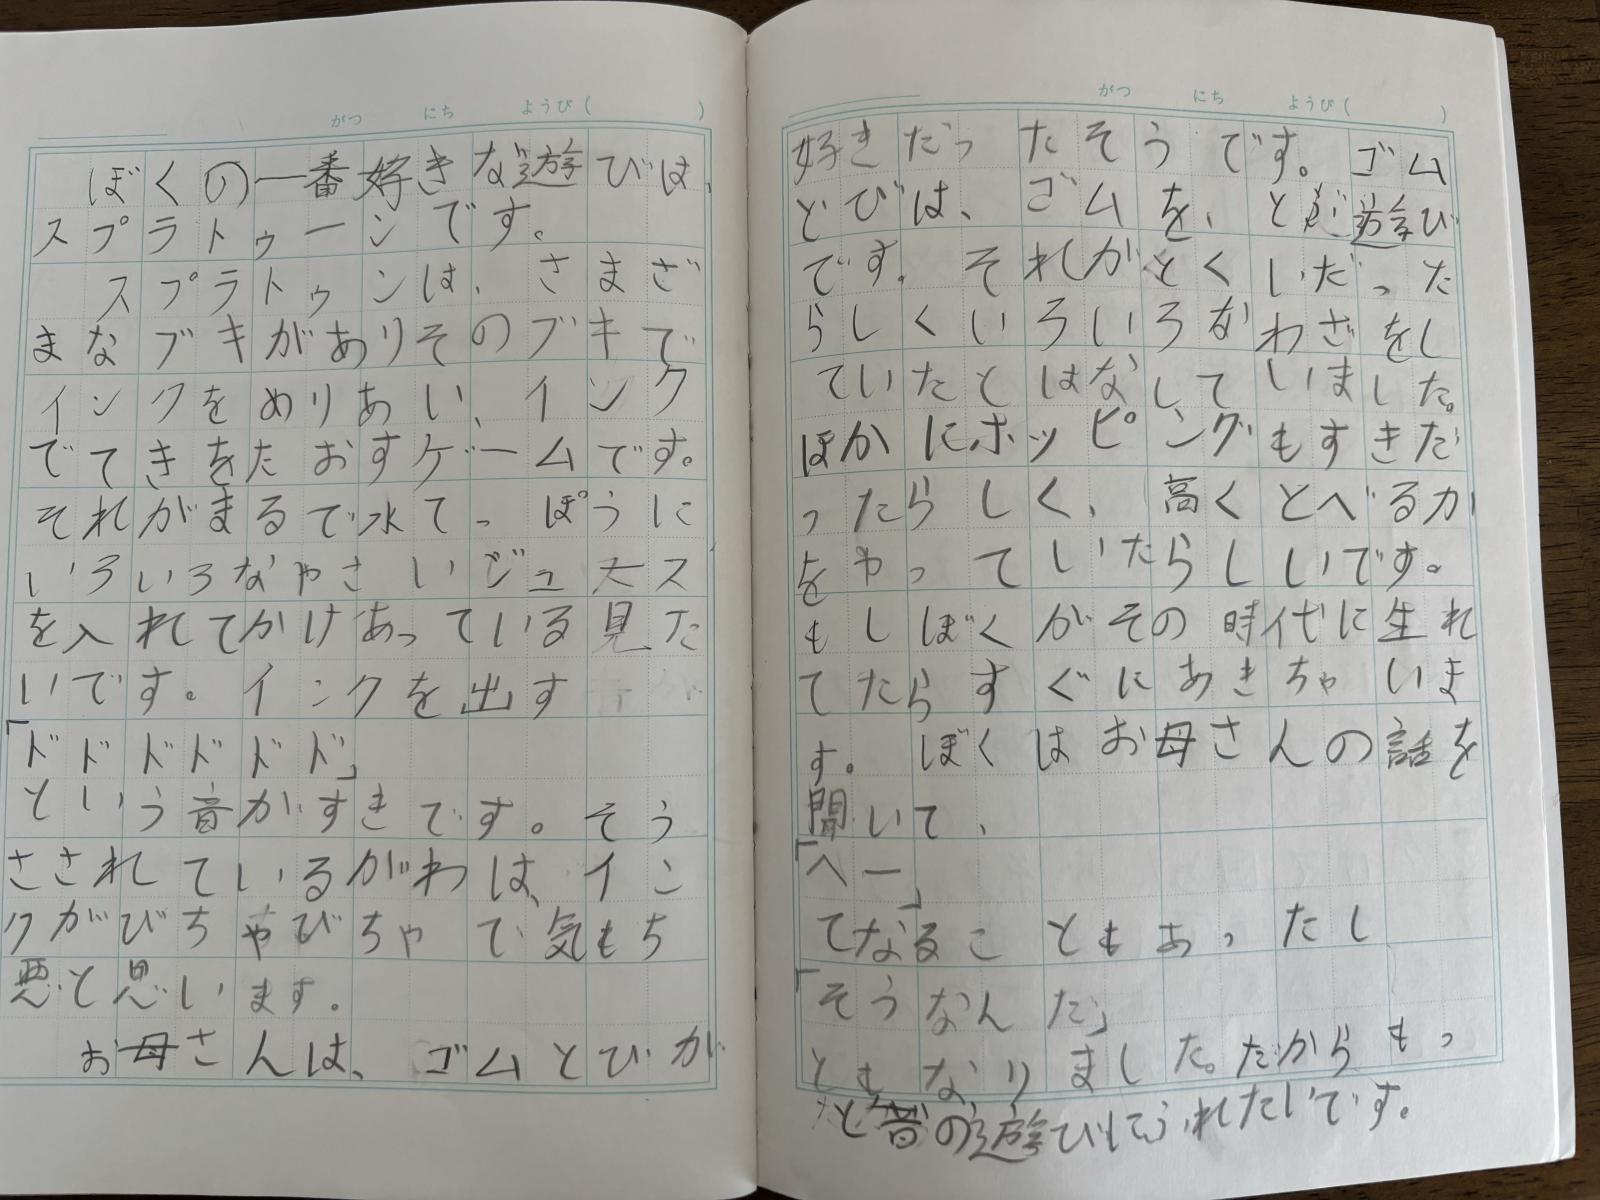 がつ にち ようび( )
ぼくの一番好きな遊びは、
スプラトゥーンです。
スプラトゥンは、さまざ
まなブキがありそのブキで
インクをめりあい、インク
でてきをたおすゲームです。
それがまるで水てっぽうに
いろいろなやさいジュース
を入れてかけあっている見た
いです。インクを出す
「ドドドドドド」
という音がすきです。そう
さされているがわは、イン
クがびちゃびちゃで気もち
悪と思います。
お母さんは、ゴムとびが
がつ にち ようび( )
好きだったそうです。ゴム
とびは、ゴムを、とぶ遊び
です。それがとくいだった
らしくいろいろなわざをし
ていたとはなしていました。
ほかにホッピングもすきだ
ったらしく、高くとべるか
をやっていたらしいです。
もしぼくがその時代に生れ
てたらすぐにあきちゃいま
す。ぼくはお母さんの話を
聞いて、
「へー」
てなることもあったし
「そうなんだ」
ともなりました。だからもっ
と昔の遊びにふれたいです。